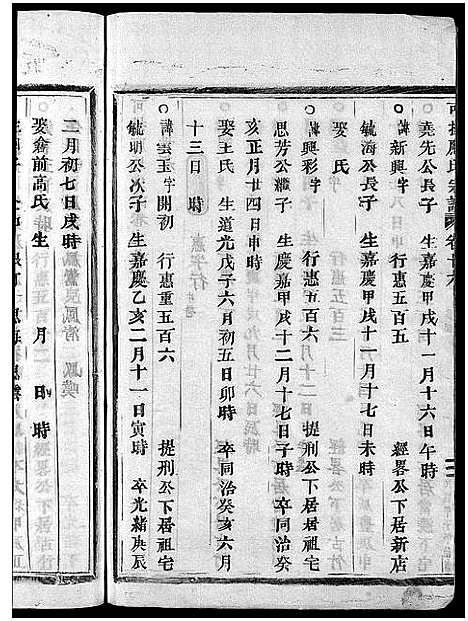 堯先公長子　生嘉慶甲戌十一月十六日午時
○諱新興字　行惠五百五　經畧公下居新店
毓海公長子　生嘉慶甲戌十一月十七日未時
娶　氏
○諱興彩字　行惠五百六　提刑公下居祖宅
思芳公繼子　生嘉慶甲戌十二月十七日子時　卒同治癸
亥正月廿四日申時
娶王氏　生道光戊子六月初五日卯時　卒同治癸亥六月
十三日　時
○諱雲玉字開初　行惠重五百六　提刑公下居祖宅
毓明公次子　生嘉慶乙亥二月十一日寅時　卒光緒庚辰
二月初七日戌時
娶俞前高氏　生　月　日　時